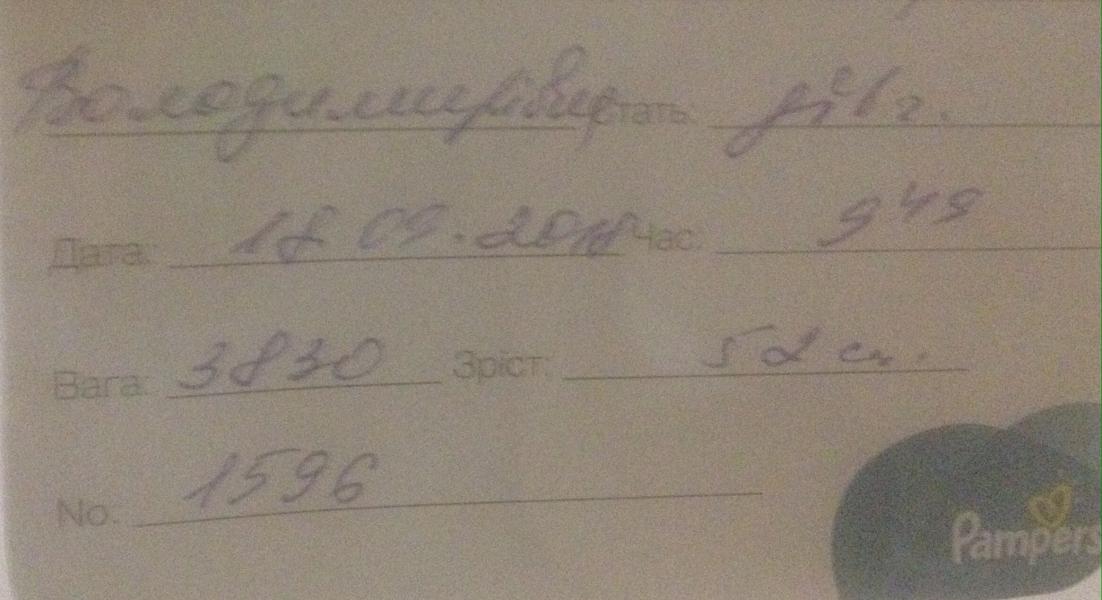 Володимирівна Стать: дівч.
Дата: 18 09.2018 Час: 9 49
Вага: 3830 Зріст: 52 см.
No: 1596
Pampers